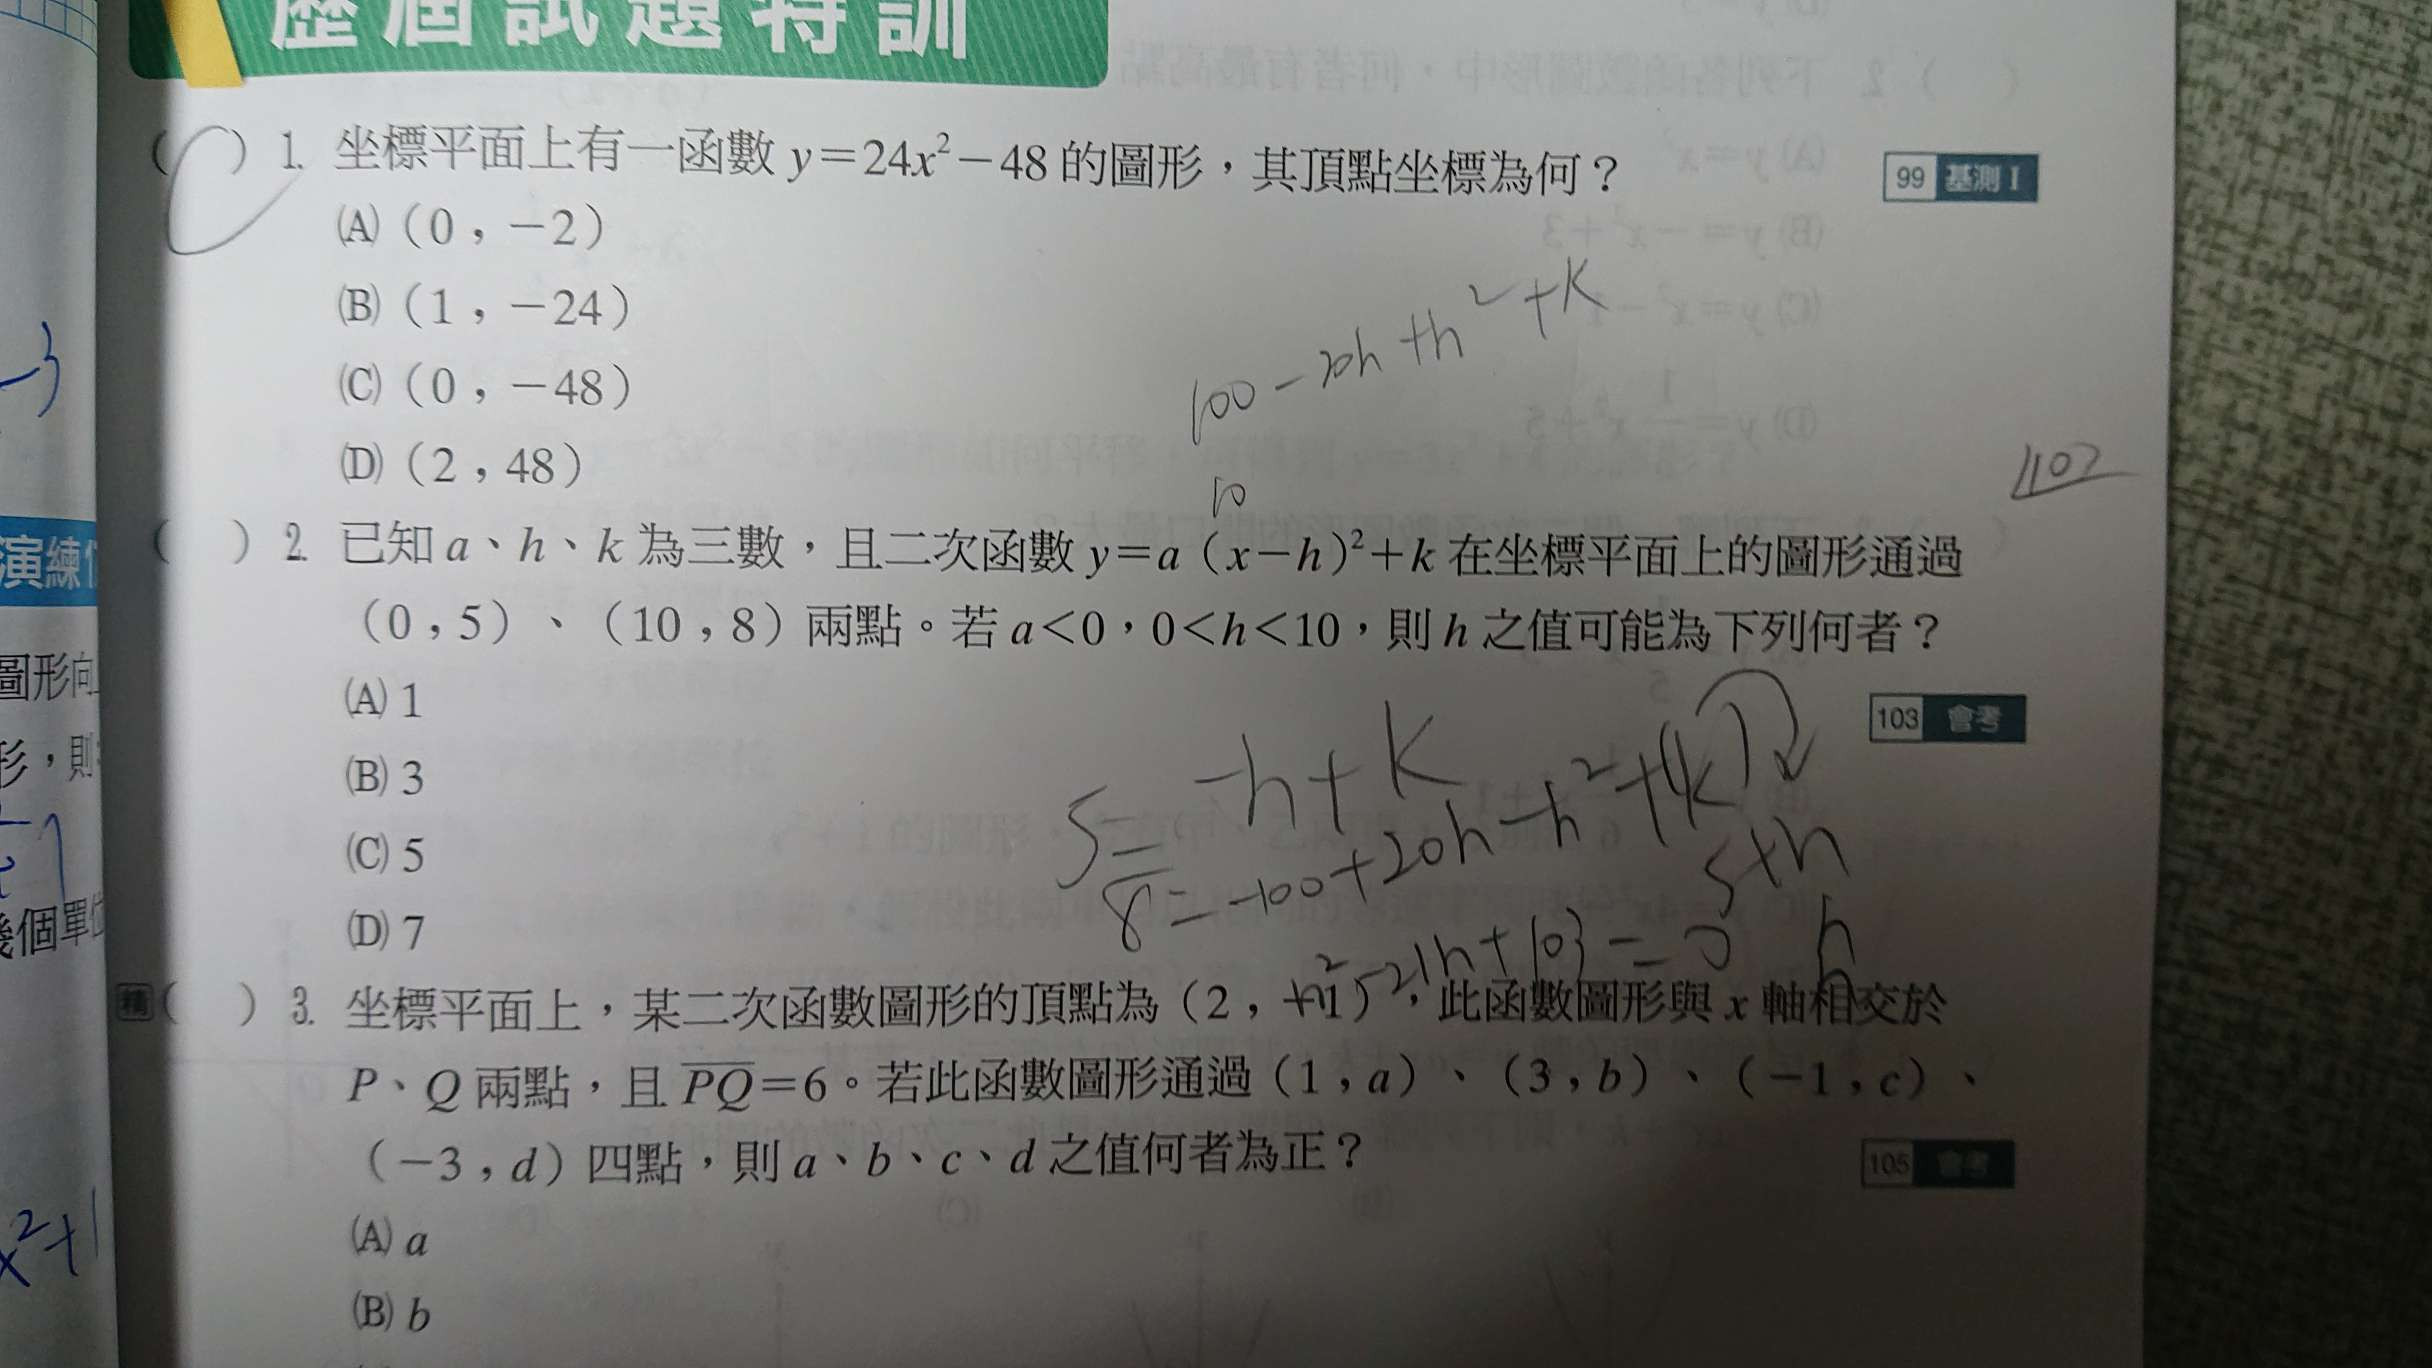 歷屆試題特訓
( ) 1. 坐標平面上有一函數 y=24x²-48 的圖形，其頂點坐標為何？
99 基測 I
(A)(0，-2)
(B)(1，-24)
(C)(0，-48)
(D)(2，48)
100-20h+h²+k
1102
10
( ) 2. 已知 a、h、k 為三數，且二次函數 y=a(x-h)²+k 在坐標平面上的圖形通過
(0,5)、(10,8)兩點。若 a<0，0<h<10，則 h 之值可能為下列何者？
103 會考
(A) 1
(B) 3
(C) 5
(D) 7
5=-h+k
8=-100+20h-h²+(k)
5+h
h²-21h+103=0
h
精 ( ) 3. 坐標平面上，某二次函數圖形的頂點為(2，-1)，此函數圖形與 x 軸相交於
P、Q 兩點，且 PQ=6。若此函數圖形通過(1，a)、(3，b)、(-1，c)、
(-3，d)四點，則 a、b、c、d 之值何者為正？
105 會考
(A) a
(B) b
-3
演練
圖形向
形，則
幾個單位
x²+1